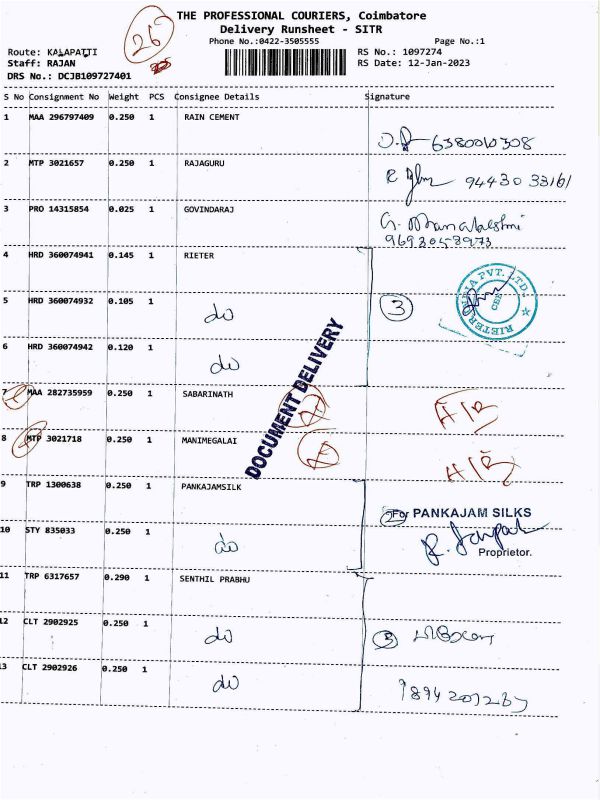 THE PROFESSIONAL COURIERS, Coimbatore
Delivery Runsheet - SITR
26
Phone No.:0422-3505555 Page No.:1
Route: KALAPATTI RS No.: 1097274
Staff: RAJAN RS Date: 12-Jan-2023
DRS No.: DCJB109727401
S No Consignment No Weight PCS Consignee Details Signature
1 MAA 296797409 0.250 1 RAIN CEMENT
6380010308
2 MTP 3021657 0.250 1 RAJAGURU
94430 33161
3 PRO 14315854 0.025 1 GOVINDARAJ
G. Dhanalakshmi
9693058973
4 HRD 360074941 0.145 1 RIETER
RIETER INDIA PVT. LTD.
5 HRD 360074932 0.105 1 do 3
6 HRD 360074942 0.120 1 do
DOCUMENT DELIVERY
7 MAA 282735959 0.250 1 SABARINATH
8 MTP 3021718 0.250 1 MANIMEGALAI
9 TRP 1300638 0.250 1 PANKAJAMSILK
2 For PANKAJAM SILKS
10 STY 835033 0.250 1 do
Proprietor.
11 TRP 6317657 0.290 1 SENTHIL PRABHU
12 CLT 2902925 0.250 1 do 3
13 CLT 2902926 0.250 1 do